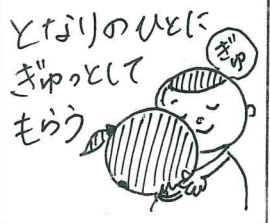 となりのひとに
ぎゅっとして
もらう
ぎゅ